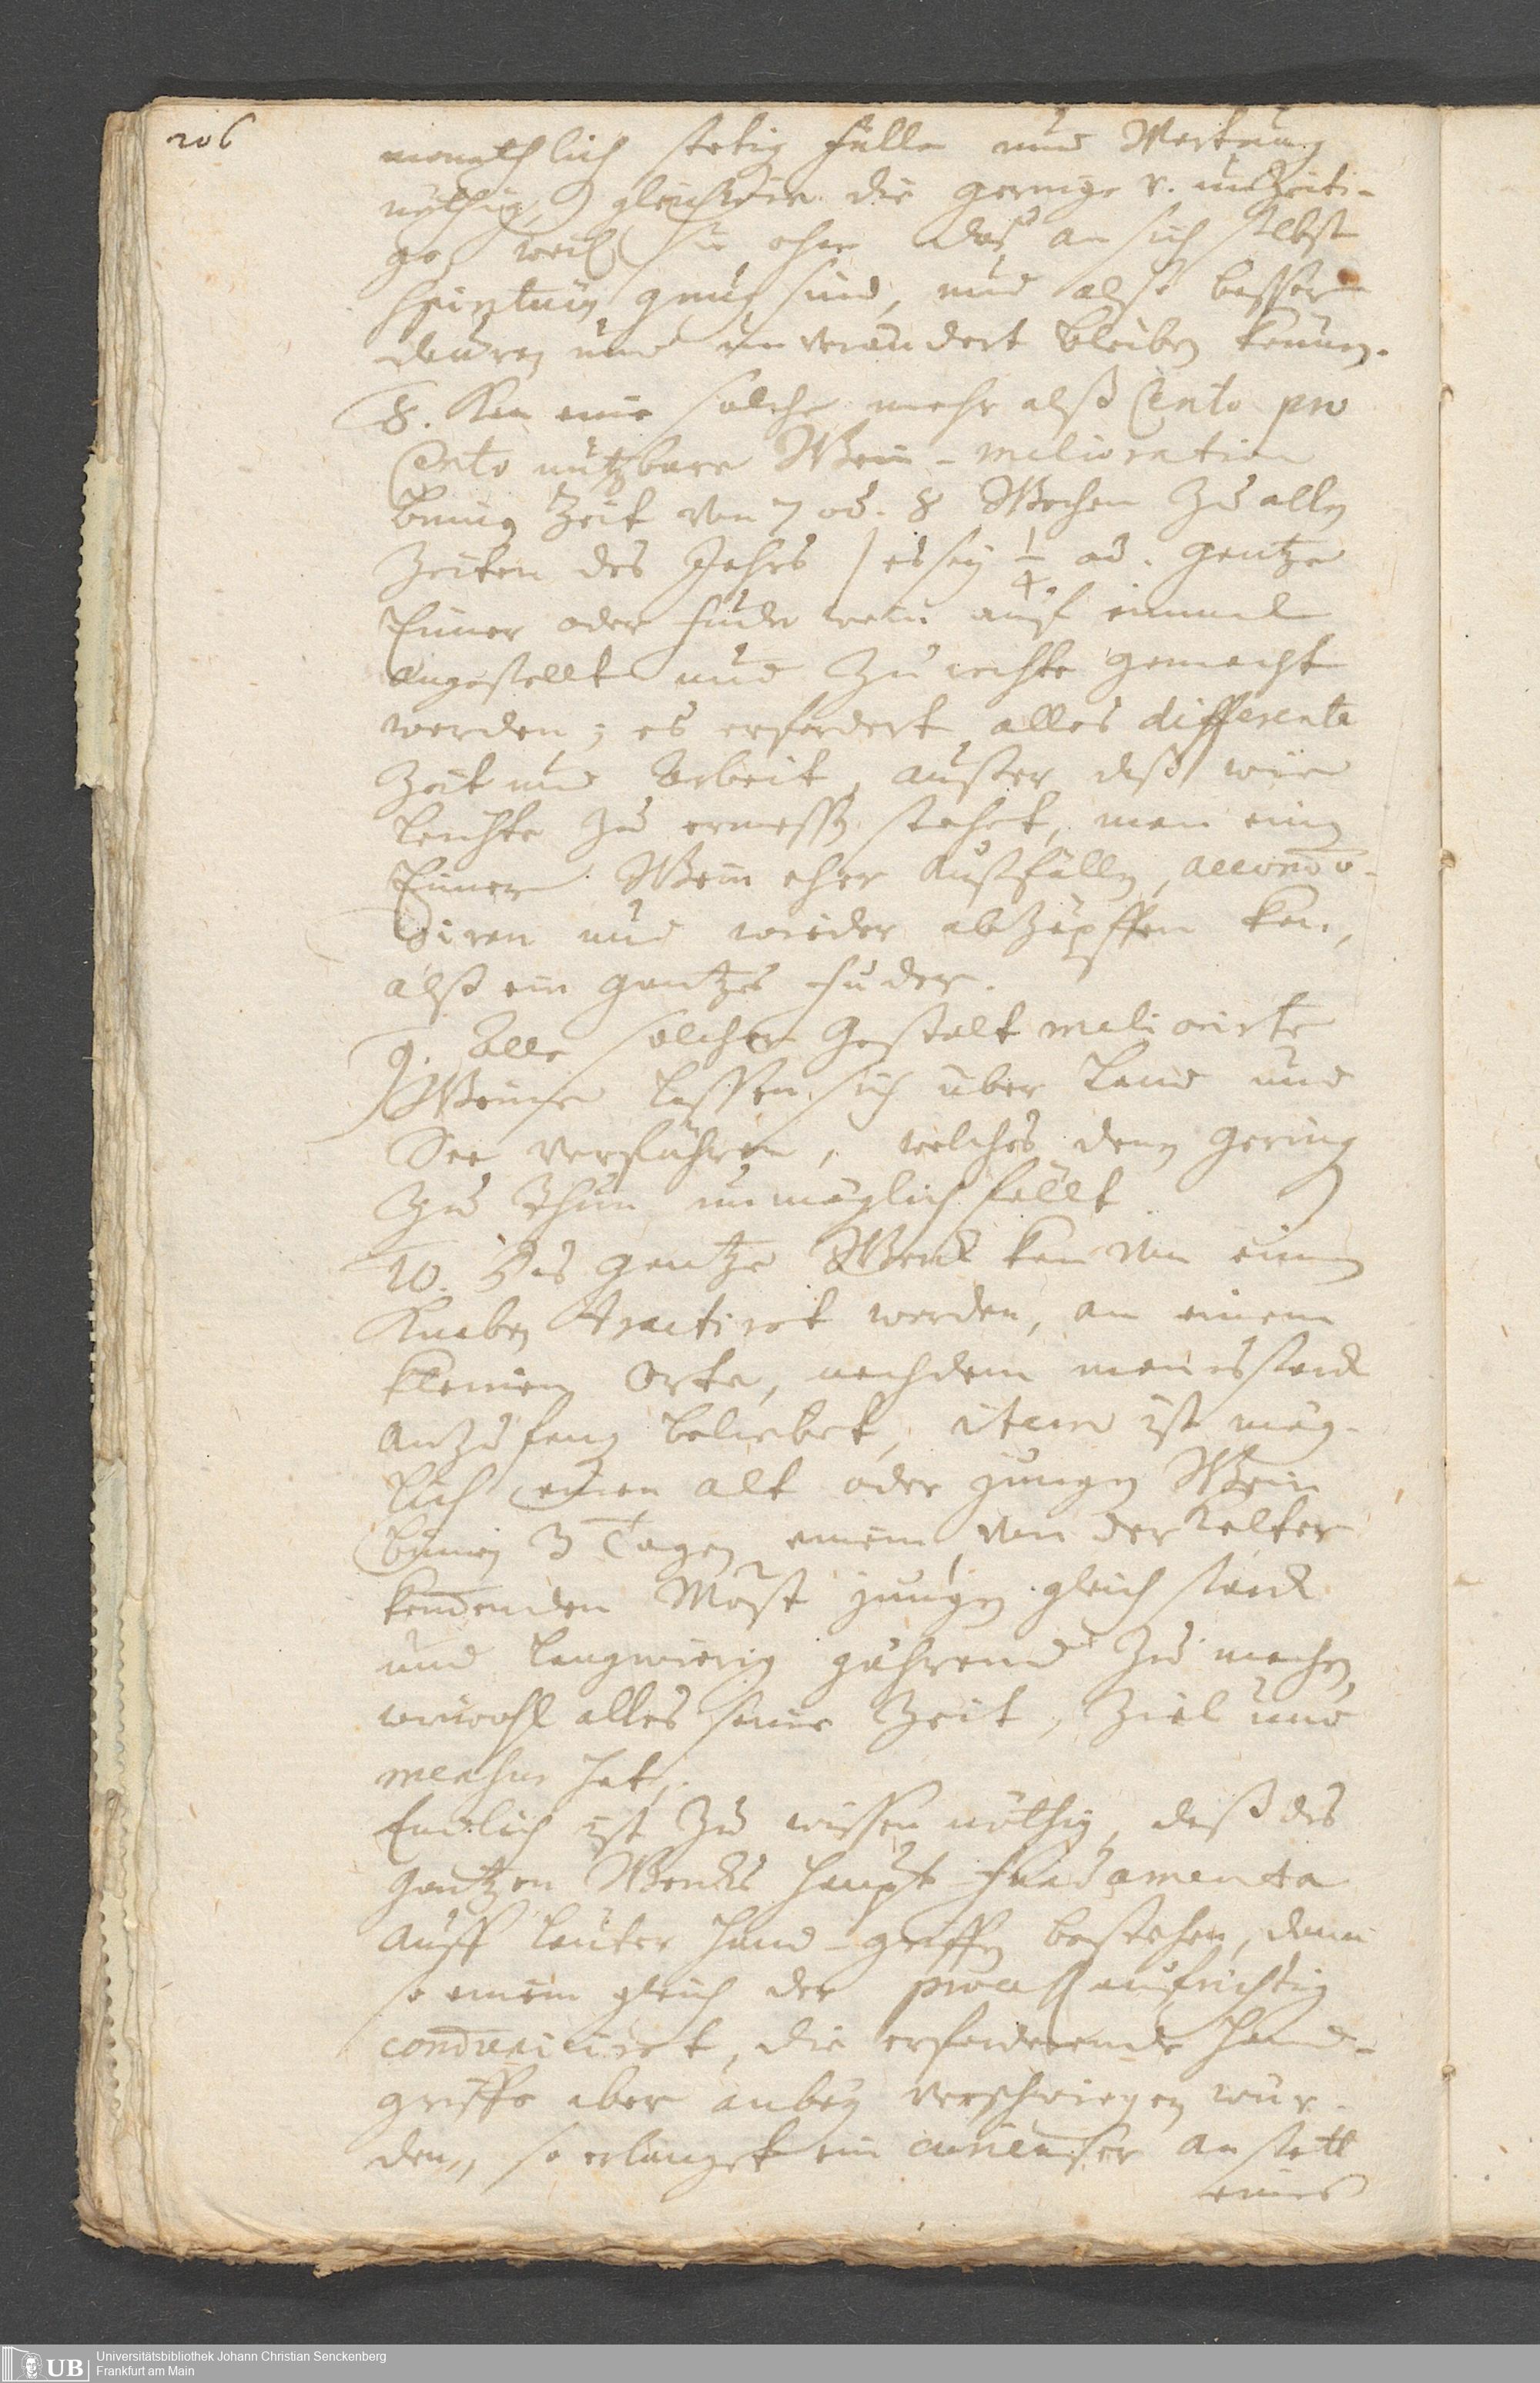 206
monathlich stetig fülle und Wartung
nöthig, gleichwie die geringe v. unzeiti-
ge, weil sie ohne das an sich selbst
spirituös gnug sind, und also besser
dauren und unverändert bleiben können.
8. Kan eine solche mehr alß Cento pro
Cento nutzbare Wein-melioration
binnen Zeit von 7 od. 8 Wochen zu allen
Zeiten des Jahrs / es sey 1/4 od. gantze
Eimer oder fuder wein auf einmal
angestellt und zu rechte gemacht
werden; es erfordert alles differente
Zeit und Arbeit, außer daß wie
leichte zu ermessen stehet, man einen
Eimer Wein eher außfüllen, accom̄o-
diren und wieder abzäpffen kan,
alß ein gantzes Fuder.
9. Alle solcher Gestalt meliorirte
Weine lassen sich über Land und
See verführen, welches denen gering
zu thun unmöglich fällt
10. Das gantze Werck kan von einem
Knaben tractiret werden, an einem
kleinen Orte, nachdem man es starck
anzufangen beliebet, item ist mög-
lich einen alt oder jungen Wein
binnen 3 Tagen einem von der Kelter
kom̄enden Most jungen gleich starck
und langwierig gährend zu machen,
wiewohl alles seine Zeit, Ziel und
maasse hat.
Endlich ist zu wissen nöthig, daß des
gantzen Wercks Haupt-fundamenta
auff lauter Hand-griffen bestehen, dann
so einem gleich der process aufrichtig
com̄uniciret, die erfordernde Hand-
griffe aber anbey verschwiegen wür-
den, so erlanget ein curieuser anstatt
eines
Universitätsbibliothek Johann Christian Senckenberg
Frankfurt am Main
UB